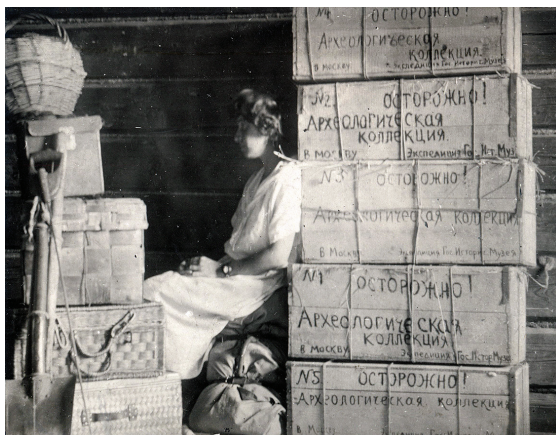 №4 ОСТОРОЖНО!
Археологическая
коллекция.
В МОСКВУ Экспедиция Гос. Историч. Музея
№2 ОСТОРОЖНО!
АРХЕОЛОГИЧЕСКАЯ
КОЛЛЕКЦИЯ
В МОСКВУ Экспедиция Гос. Ист. Муз.
№3 ОСТОРОЖНО!
АРХЕОЛОГИЧЕСКАЯ КОЛЛЕКЦИЯ
В МОСКВУ Экспедиция Гос. Историч. Музея
№1 ОСТОРОЖНО!
АРХЕОЛОГИЧЕСКАЯ
КОЛЛЕКЦИЯ
В МОСКВУ Экспедиция Гос. Истор. Музея
№5 ОСТОРОЖНО!
АРХЕОЛОГИЧЕСКАЯ КОЛЛЕКЦИЯ